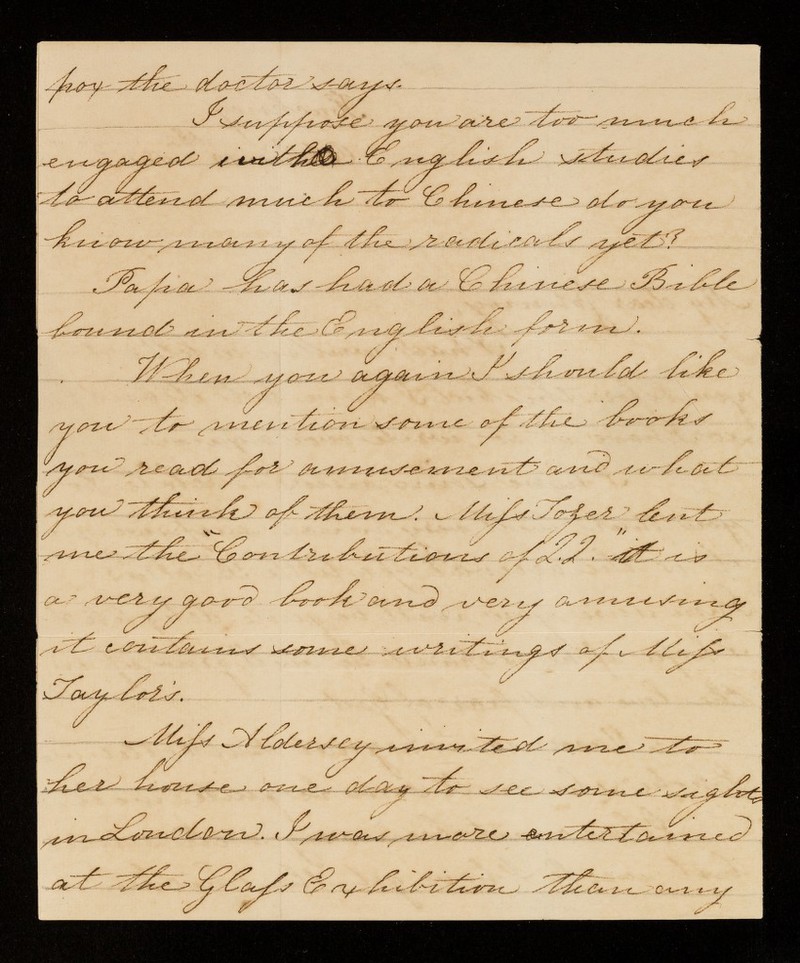 pox the doctor says.
I suppose you are too much
engaged with English studies
to attend much to Chinese do you
know many of the radicals yet?
Papa has had a Chinese Bible
bound in the English form.
When you again I should like
you to mention some of the books
you read for amusement and what
you think of them. Miss Tozer lent
me the "Contributions of Q.Q." it is
a very good book and very amusing
it contains some writings of Miss
Taylor's.
Miss Aldersey invited me to
her house one day to see some sights
in London. I was more entertained
at the Glass Exhibition than any